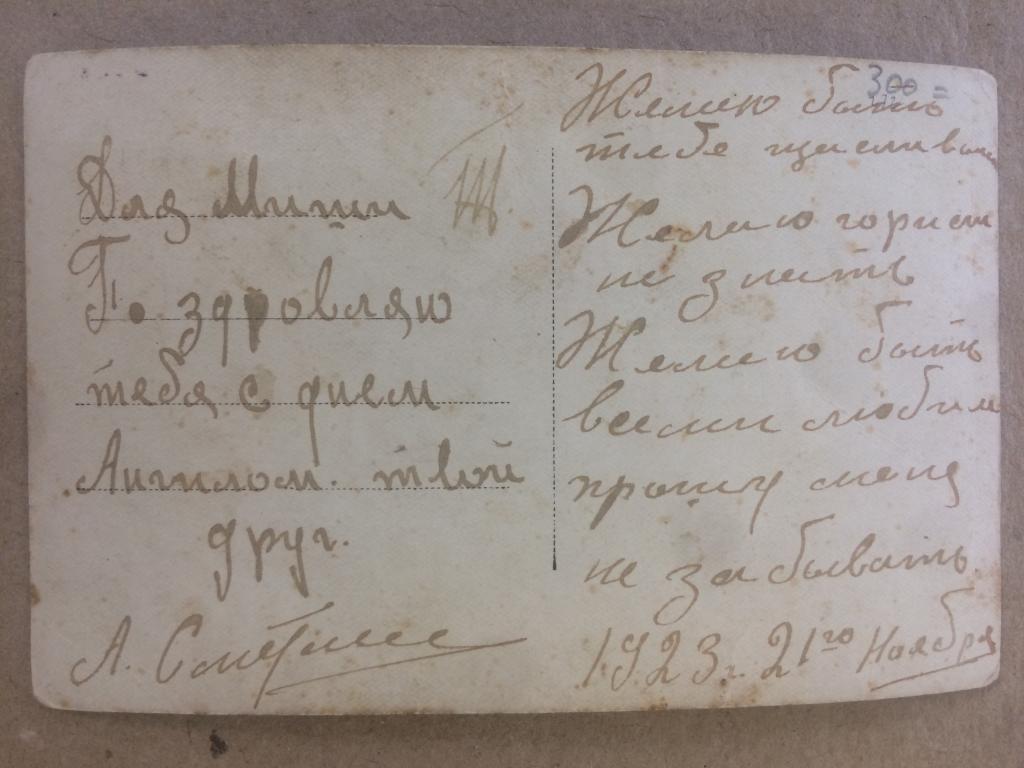 Для Миши Ж.
Поздровляю
тебя с днем
Ангилом. твой
друг.
А.
Желаю быть
тебе щасливым
Желаю горя
не знать
Желаю быть
всеми любим
прошу меня
не забывать
1923 г. 21го Ноября
300 =